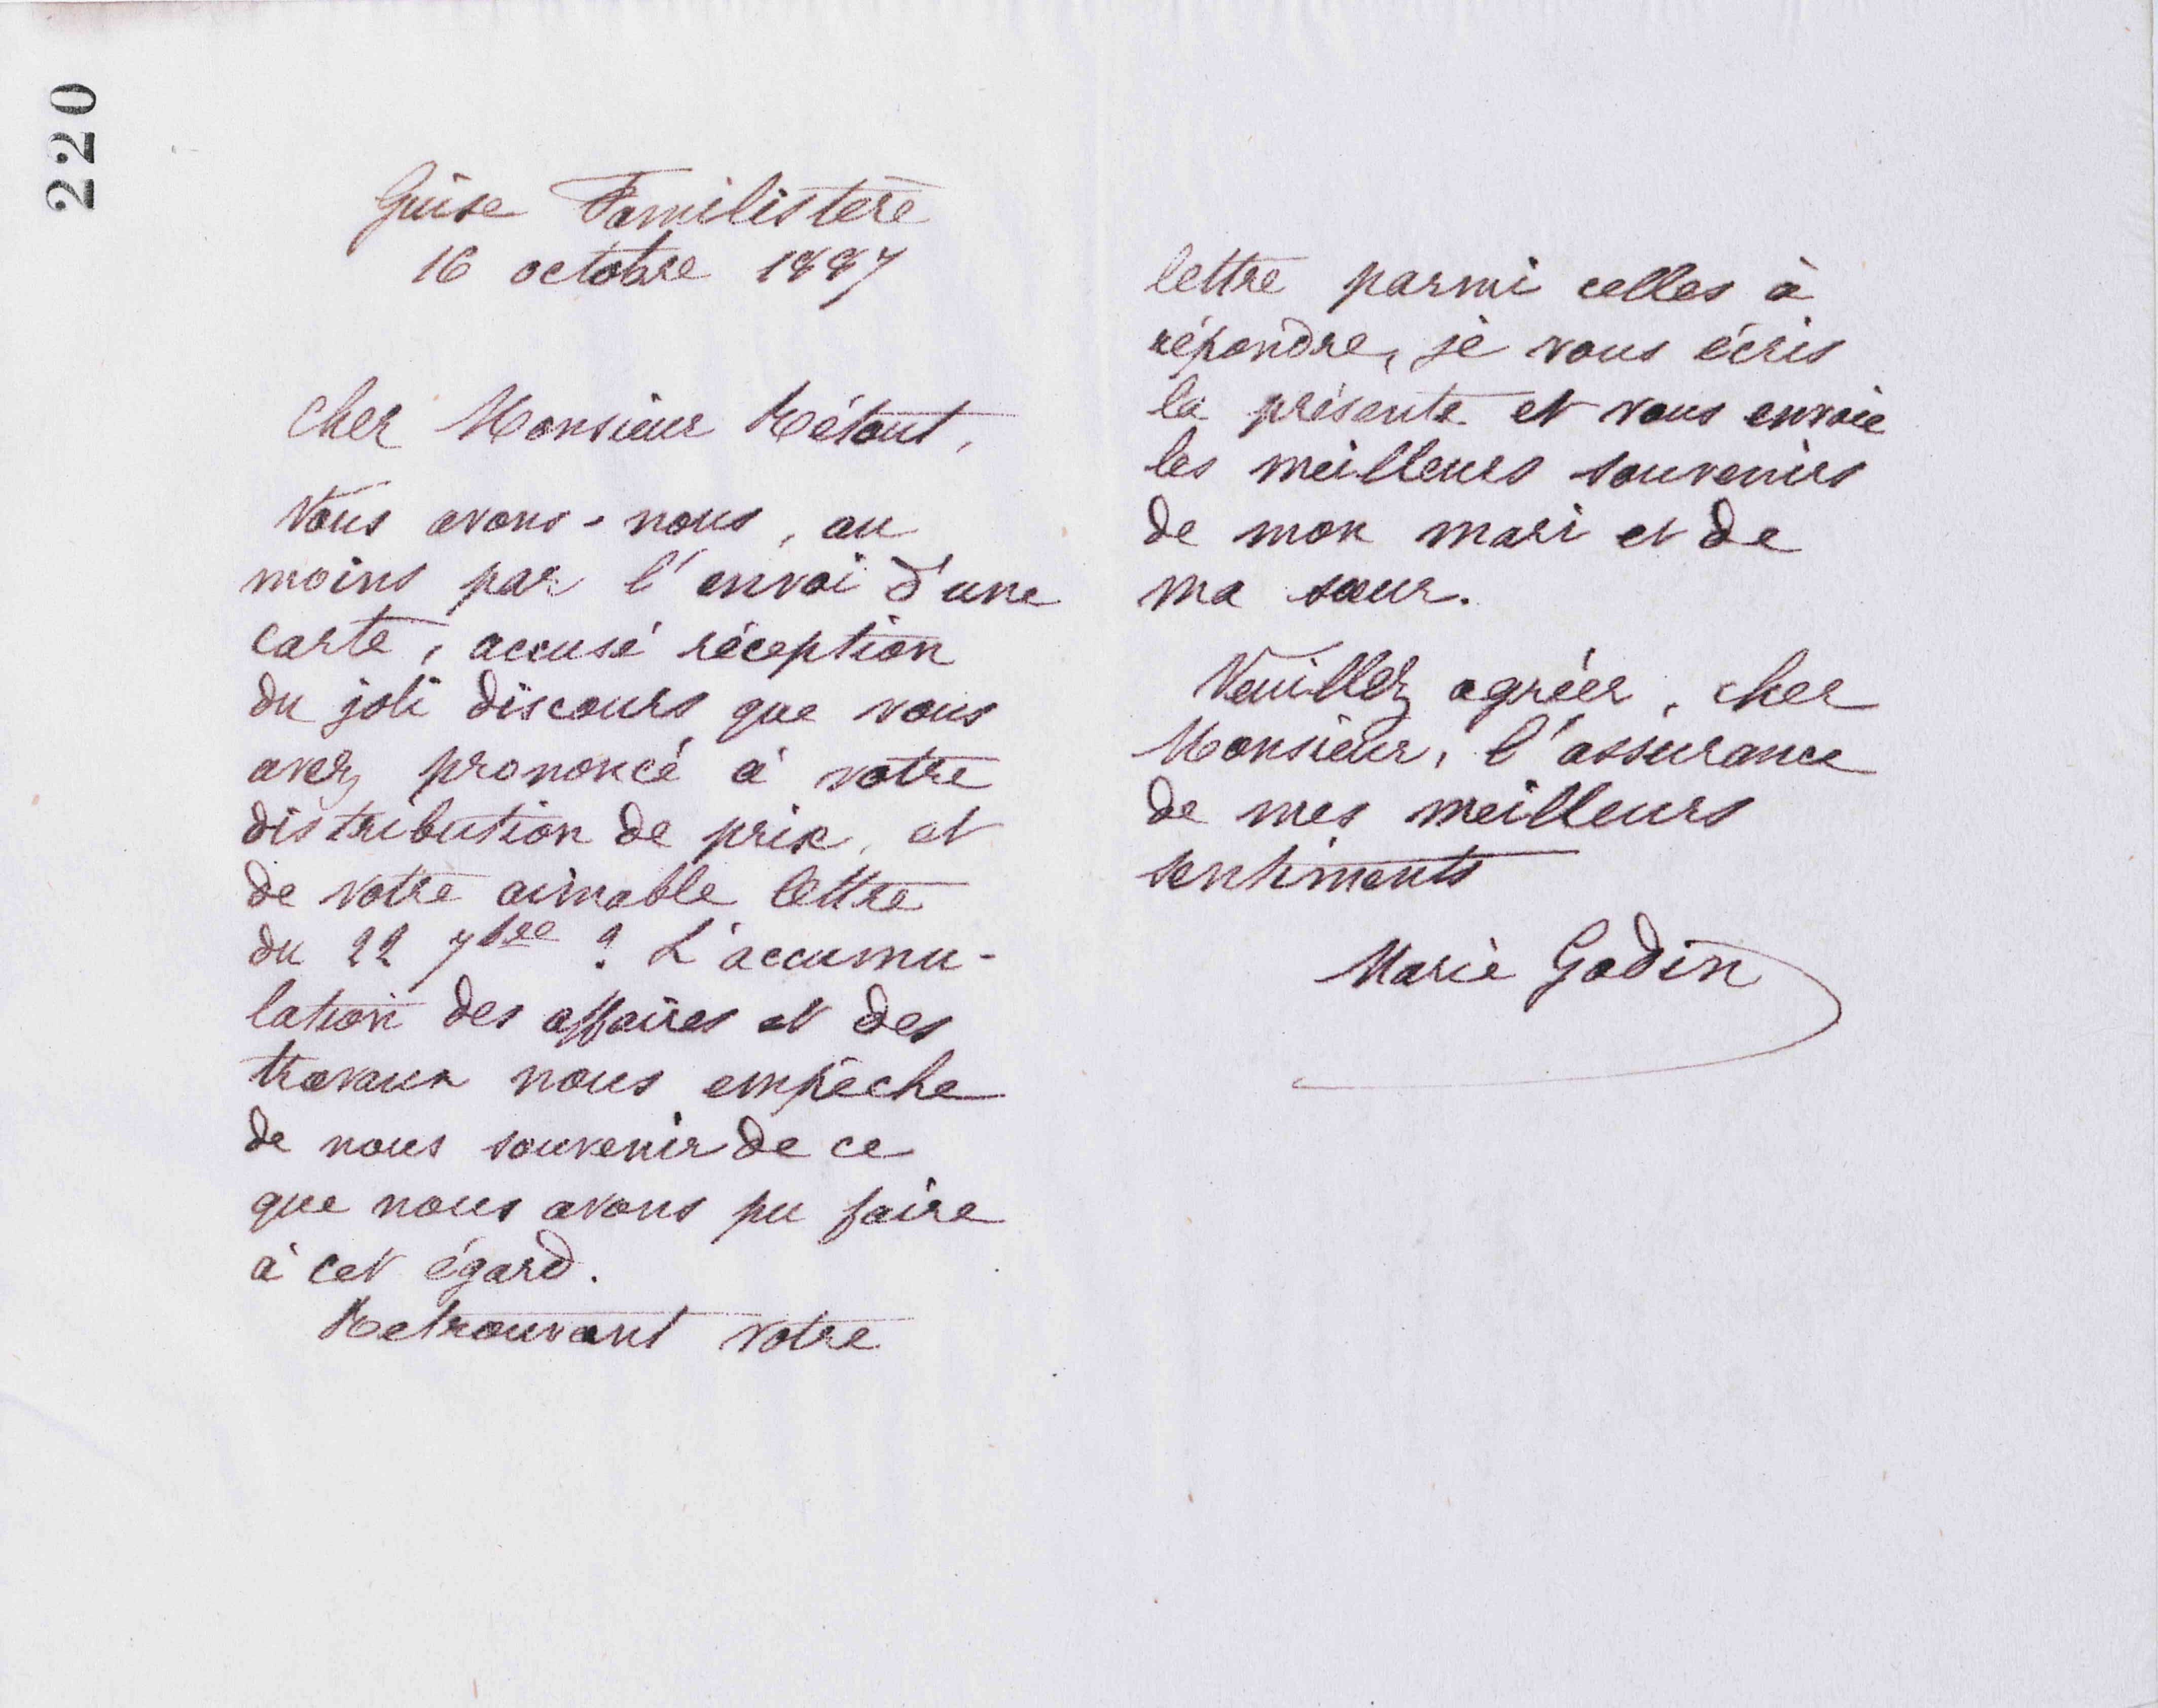 220
Guise Familistère
16 octobre 1887
Cher Monsieur Rétout,
Vous avons-nous, au
moins par l'envoi d'une
carte, accusé réception
du joli discours que vous
avez prononcé à votre
distribution de prix, et
de votre aimable lettre
du 22 7bre ? L'accumu-
lation des affaires et des
travaux nous empêche
de nous souvenir de ce
que nous avons pu faire
à cet égard.
Retrouvant votre
lettre parmi celles à
répondre, je vous écris
la présente et vous envoie
les meilleurs souvenirs
de mon mari et de
ma sœur.
Veuillez agréer, cher
Monsieur, l'assurance
de mes meilleurs
sentiments
Marie Godin